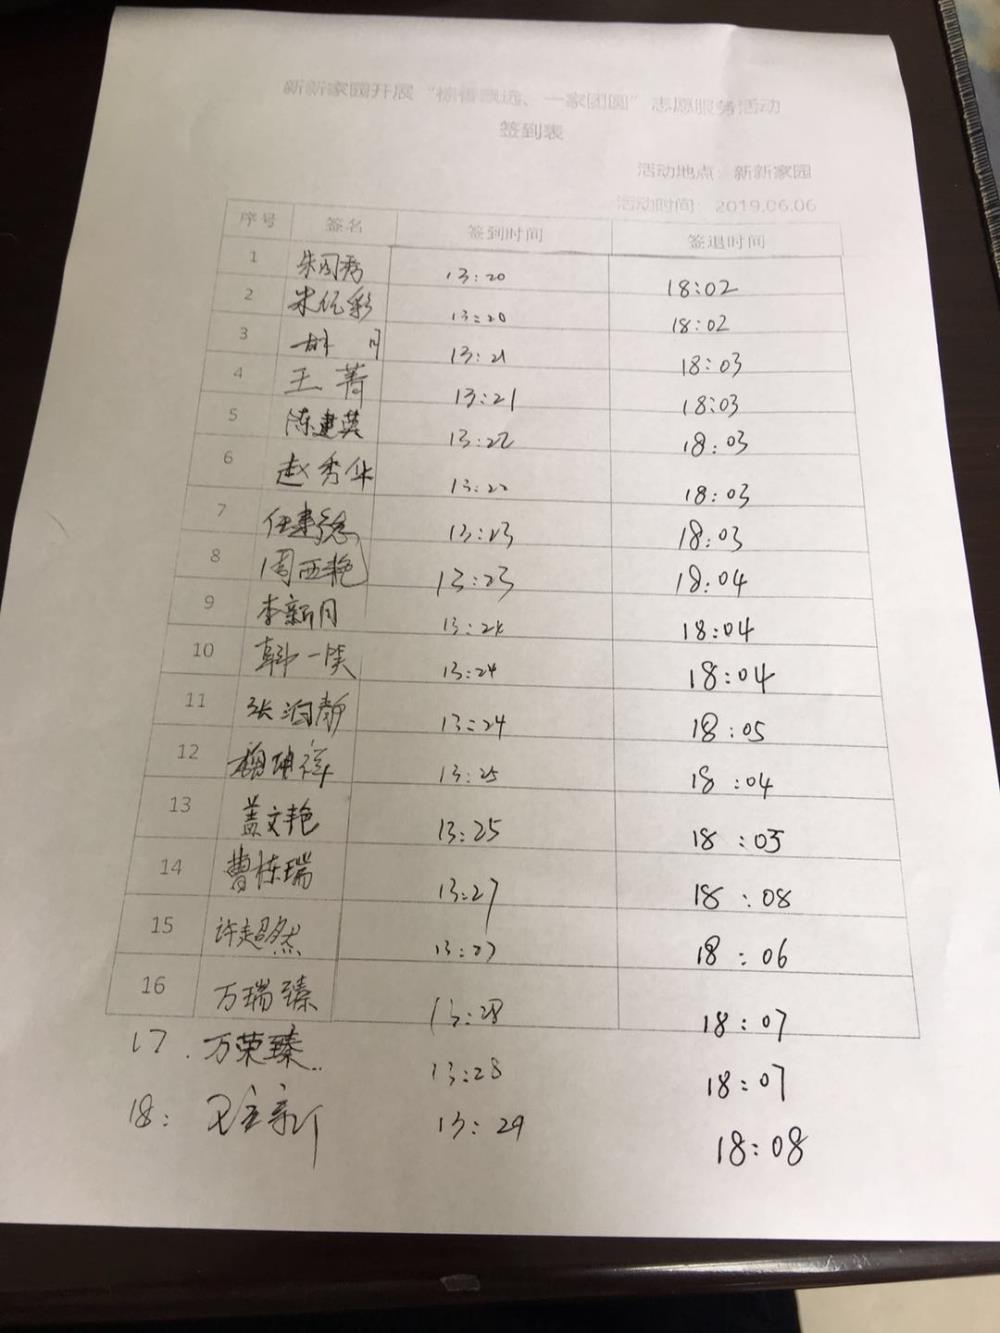 新新家园开展“粽香飘远、一家团圆”志愿服务活动
签到表
活动地点：新新家园
活动时间：2019.06.06
序号 签名 签到时间 签退时间
1 朱国秀 13:20 18:02
2 13:20 18:02
3 胡月 13:21 18:03
4 王菁 13:21 18:03
5 陈建英 13:22 18:03
6 赵秀华 13:22 18:03
7 13:23 18:03
8 周西艳 13:23 18:04
9 李新月 13:24 18:04
10 韩一 13:24 18:04
11 张泊静 13:24 18:05
12 13:25 18:04
13 盖文艳 13:25 18:05
14 曹栋瑞 13:27 18:08
15 许超然 13:27 18:06
16 万瑞臻 13:28 18:07
17. 万荣臻 13:28 18:07
18: 13:29 18:08